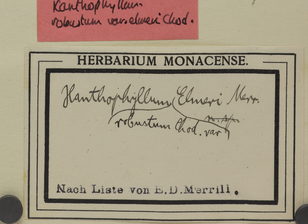 Xanthophyllum
robustum var. elmeri Chod.
HERBARIUM MONACENSE.
Xanthophyllum Elmeri Merr.
n. sp.
robustum Chod. var
Nach Liste von E.D. Merrill.